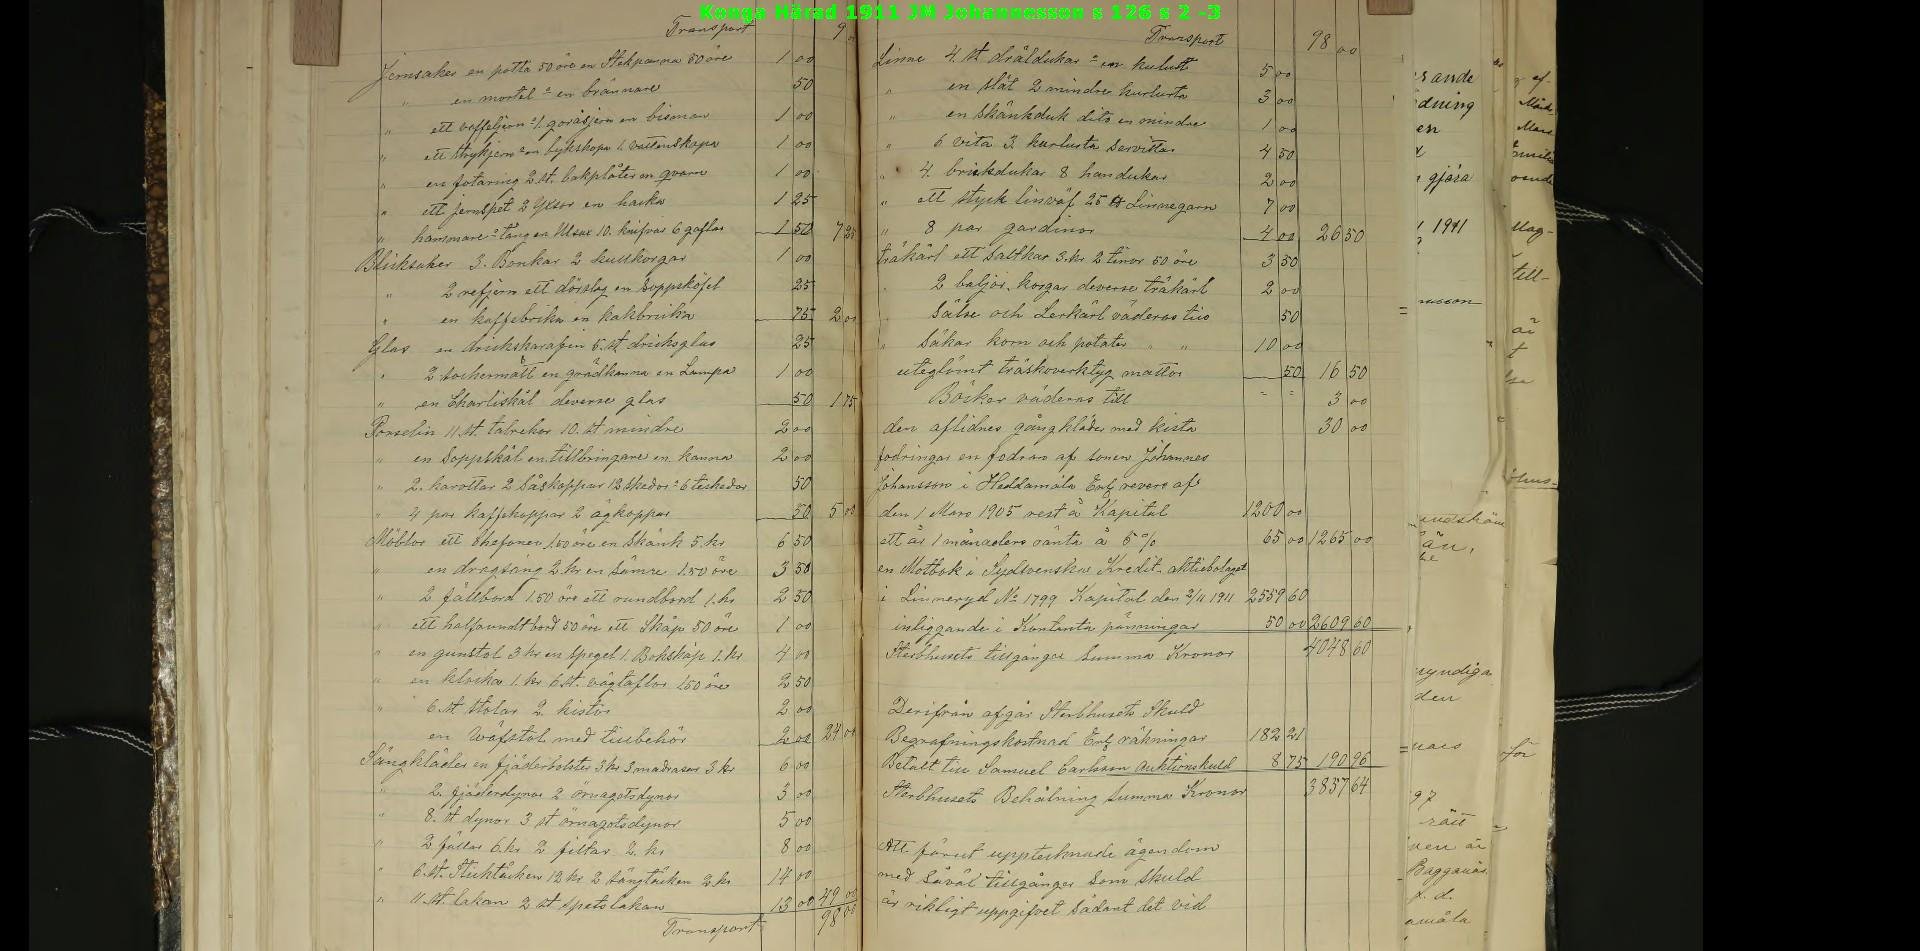 Konga Härad 1911 JM Johannesson s 126 s 2 -3
Transport 9
Jernsaker en potta 50 öre en Stekpanna 50 öre 1 00
" en mortel " en brännare 50
" ett voffeljern " 1. goräsjern en bisman 1 00
" ett Strykjern " en bykskopa 1. vattenskopa 1 00
" en fotaring 2 st. bakplåter en qvarn 1 00
" ett jernspet 2 Yxor en hacka 1 25
" hammare " tång en Ulsax 10. knifvar 6 gaflar 1 50 7 25
Blicksaker 3. Bonkar 2 kullkorgar 1 00
" 2 refjern ett dörslag en Soppsköfel 25
" en kaffebrika en kakbrika 75 2 00
Glas en drickskarafin 5. st dricksglas 25
" 2 sockermått en grädkanna en Lampa 1 00
" en Charliskål deverse glas 50 1 75
Porselin 11 st. talrekar 10. st mindre 2 00
" en Soppskål en tillbringare en kanna 2 00
" 2. karottar 2 Såskoppar 12 Skedar " 6 teskedar 50
" 4 par kaffekoppar 2 ägkoppar 50 5 00
Möblor ett Chefoner 1.50 öre en Skänk 5. kr 6 50
" en dragsäng 2 kr en Sämre 1.50 öre 3 50
" 2 fällbord 1.50 öre ett rundbord 1. kr 2 50
" ett halfrundt bord 50 öre ett Skåp 50 öre 1 00
" en gunstol 3 kr en Spegel 1. Bokskåp 1. kr 4 00
" en klocka 1. kr 6 st. vägtaflor 1.50 öre 2 50
" 6 st Stolar 2. kistor 2 00
en Wäfstol med tillbehör 2 00 24 00
Sängkläder en fjäderbolster 3 kr 3 madraser 3. kr 6 00
" 2. fjäderdynor 2 örnagotsdynor 3 00
" 8. st dynor 3 st örnagotsdynor 5 00
" 2 fällar 6. kr 2 filtar 2. kr 8 00
" 6. st. Sticktäcken 12 kr 2 sängtäcken 2 kr 14 00
" 11. st. lakan 2 st spetslakan 13 00 49 00
Transport 98 00
Transport 98 00
Linne 4. st dräldukar " en kulust 5 00
" en slät 2 mindre kurlurta 3 00
" en Skänkduk dito en mindre 1 00
" 6 vita 3. kurlurta Servittar 4 50
" 4. brickdukar 8 handukar 2 00
" ett styck linväf 25 Linnegarn 7 00
" 8 par gardinor 4 00 26 50
träkärl ett Saltkar 3. kr 2 tinor 50 öre 3 50
" 2 baljor. korgar deverse träkärl 2 00
" Sälse och Lerkärl väderas till 50
" Säkar korn och potater " " 10 00
uteglömt träskoverktyg mattor 50 16 50
Böcker väderas till " " 3 00
den aflidnes gångkläder med kista 30 00
fodringar en fodran af sonen Johannes
Johansson i Heddamåla Enl. revers af
den 1 Mars 1905 rest å Kapital 1200 00
ett år 1 månaders ränta å 5 % 65 00 1265 00
en Motbok i Sydsvenska Kredit-Aktiebolaget
i Linneryd No 1799 Kapital den 2/11 1911 2559 60
inliggande i Kontanta pänningar 50 00 2609 60
Sterbhusets tillgångar Summa Kronor 4048 60
Derifrån afgår Sterbhusets Skuld
Begrafningskostnad Enl. räkningar 182 21
Betalt till Samuel Carlsson Auktionskuld 8 75 190 96
Sterbhusets Behålning Summa Kronor 3857 64
Att förut upptecknade ägendom
med Såväl tillgångar Som Skuld
är rikligt uppgifvet Sådant det vid
gjöra
1911